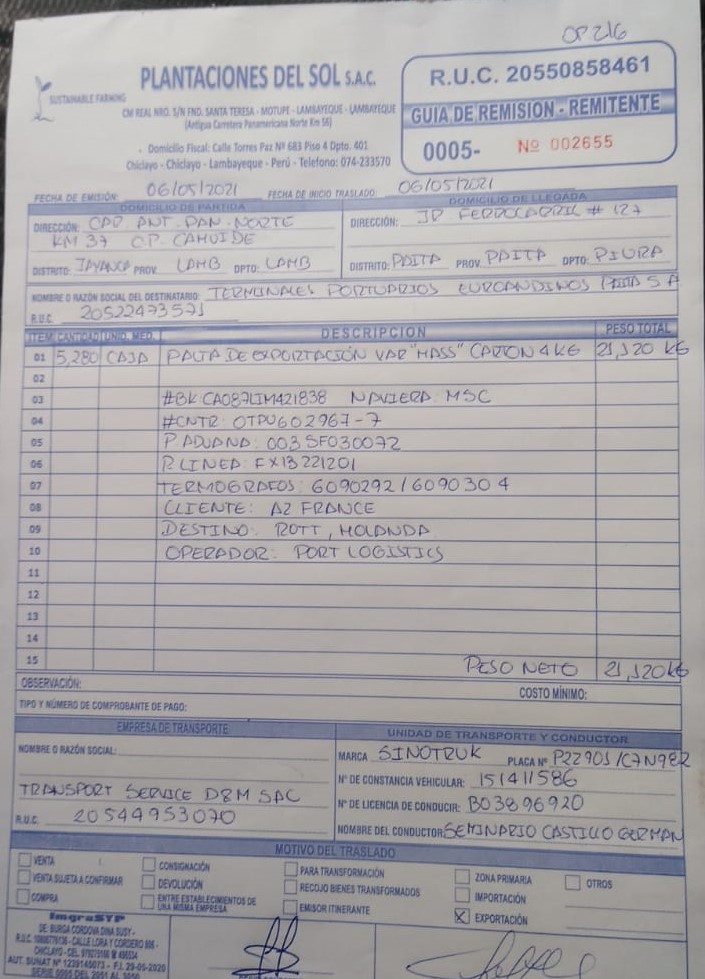 OP216
SUSTAINABLE FARMING
PLANTACIONES DEL SOL S.A.C.
CM REAL NRO. S/N FND. SANTA TERESA - MOTUPE - LAMBAYEQUE - LAMBAYEQUE
(Antigua Carretera Panamericana Norte Km 56)
Domicilio Fiscal: Calle Torres Paz Nº 683 Piso 4 Dpto. 401
Chiclayo - Chiclayo - Lambayeque - Perú - Telefono: 074-233570
R.U.C. 20550858461
GUIA DE REMISION - REMITENTE
0005- Nº 002655
FECHA DE EMISIÓN: 06/05/2021 FECHA DE INICIO TRASLADO: 06/05/2021
DOMICILIO DE PARTIDA
DIRECCIÓN: CAR. ANT. PAN. NORTE
KM 37 CP. CAHUIDE
DISTRITO: JAYANCA PROV. LAMB DPTO: LAMB
DOMICILIO DE LLEGADA
DIRECCIÓN: JR FERROCARRIL # 127
DISTRITO: PAITA PROV. PAITA DPTO: PIURA
NOMBRE O RAZÓN SOCIAL DEL DESTINATARIO: TERMINALES PORTUARIOS EUROANDINOS PAITA S A
R.U.C. 20522473571
ITEM CANTIDAD UNID. MED. DESCRIPCION PESO TOTAL
01 5,280 CAJA PALTA DE EXPORTACIÓN VAR "HASS" CARTON 4 KG 21,120 KG
02
03 #BK: CA087LIM421838 NAVIERA: MSC
04 #CNTR: OTPU602967-7
05 P. ADUANA: 003SF030072
06 P. LINEA: FX13221201
07 TERMOGRAFOS: 6090292 / 6090304
08 CLIENTE: AZ FRANCE
09 DESTINO: ROTT, HOLANDA
10 OPERADOR: PORT LOGISTICS
11
12
13
14
15 PESO NETO 21,120 KG
OBSERVACIÓN:
COSTO MÍNIMO:
TIPO Y NÚMERO DE COMPROBANTE DE PAGO:
EMPRESA DE TRANSPORTE
NOMBRE O RAZÓN SOCIAL:
TRANSPORT SERVICE D&M SAC
R.U.C. 20544953070
UNIDAD DE TRANSPORTE Y CONDUCTOR
MARCA SINOTRUK PLACA Nº P2Z901/C7N982
Nº DE CONSTANCIA VEHICULAR: 151411586
Nº DE LICENCIA DE CONDUCIR: B03896920
NOMBRE DEL CONDUCTOR SEMINARIO CASTILLO GERMAN
MOTIVO DEL TRASLADO
VENTA
VENTA SUJETA A CONFIRMAR
COMPRA
CONSIGNACIÓN
DEVOLUCIÓN
ENTRE ESTABLECIMIENTOS DE
UNA MISMA EMPRESA
PARA TRANSFORMACIÓN
RECOJO BIENES TRANSFORMADOS
EMISOR ITINERANTE
ZONA PRIMARIA
IMPORTACIÓN
X EXPORTACIÓN
OTROS
ImgraSYP
DE: BURGA CORDOVA DINA SUSY -
CALLE LORA Y CORDERO
CHICLAYO - CEL.
AUT. SUNAT Nº 1239145073 - F.I. 29-05-2020
SERIE 0005 DEL 2051 AL 3050